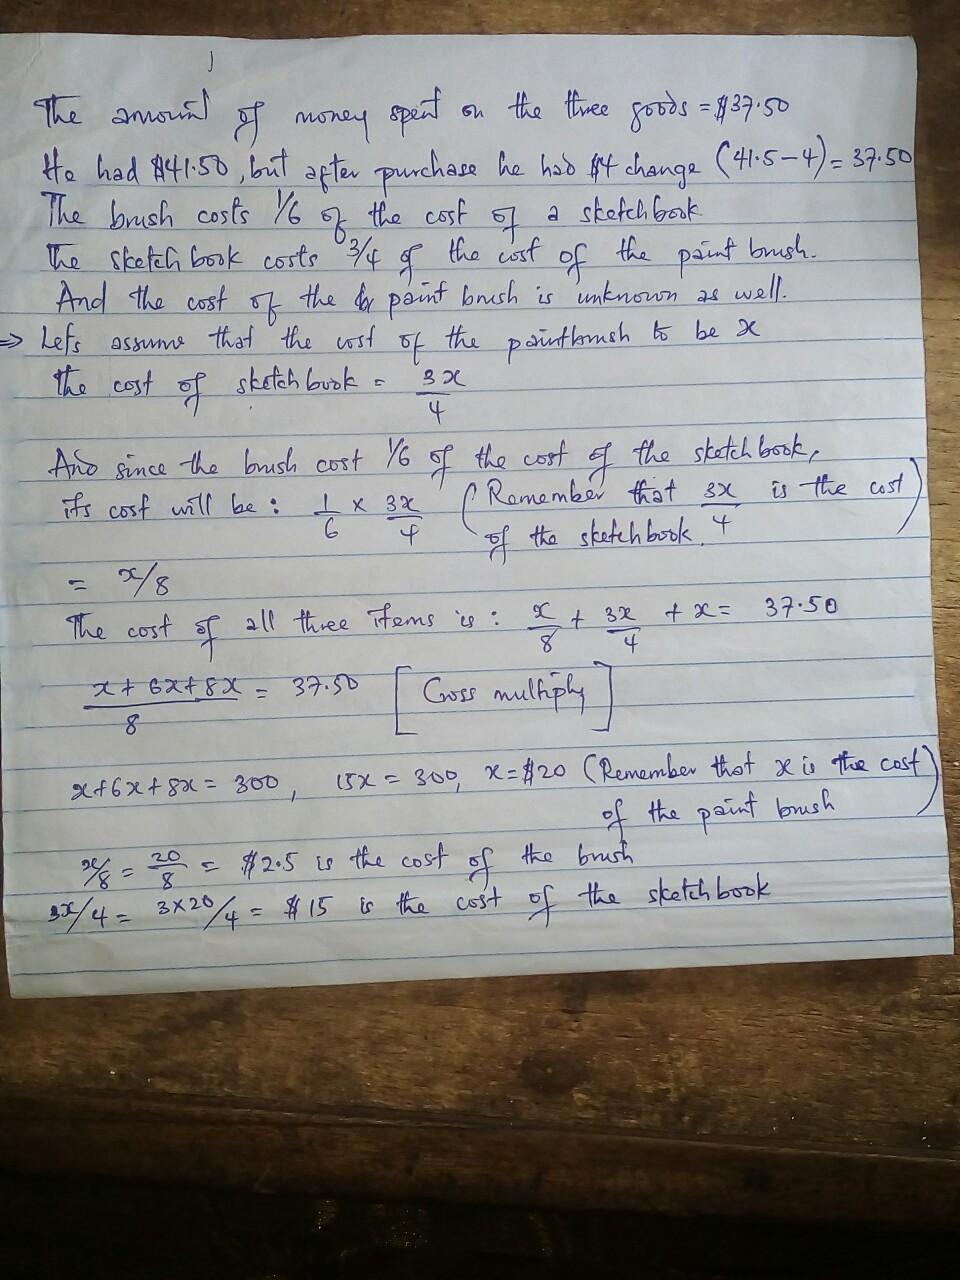 The amount of money spent on the three goods = $37.50
He had $41.50, but after purchase he had $4 change (41.5-4) = 37.50
The brush costs 1/6 of the cost of a sketchbook
The sketch book costs 3/4 of the cost of the paint brush.
And the cost of the paint brush is unknown as well.
⇒ Lets assume that the cost of the paintbrush to be x
the cost of sketchbook = 3x/4
And since the brush cost 1/6 of the cost of the sketchbook,
its cost will be : 1/6 × 3x/4 (Remember that 3x/4 is the cost
of the sketchbook.)
= x/8
The cost of all three items is : x/8 + 3x/4 + x = 37.50
x + 6x + 8x/8 = 37.50 [Cross multiply]
x+6x+8x = 300, 15x = 300, x=$20 (Remember that x is the cost
of the paint brush)
x/8 = 20/8 = $2.5 is the cost of the brush
3x/4 = 3×20/4 = $15 is the cost of the sketchbook